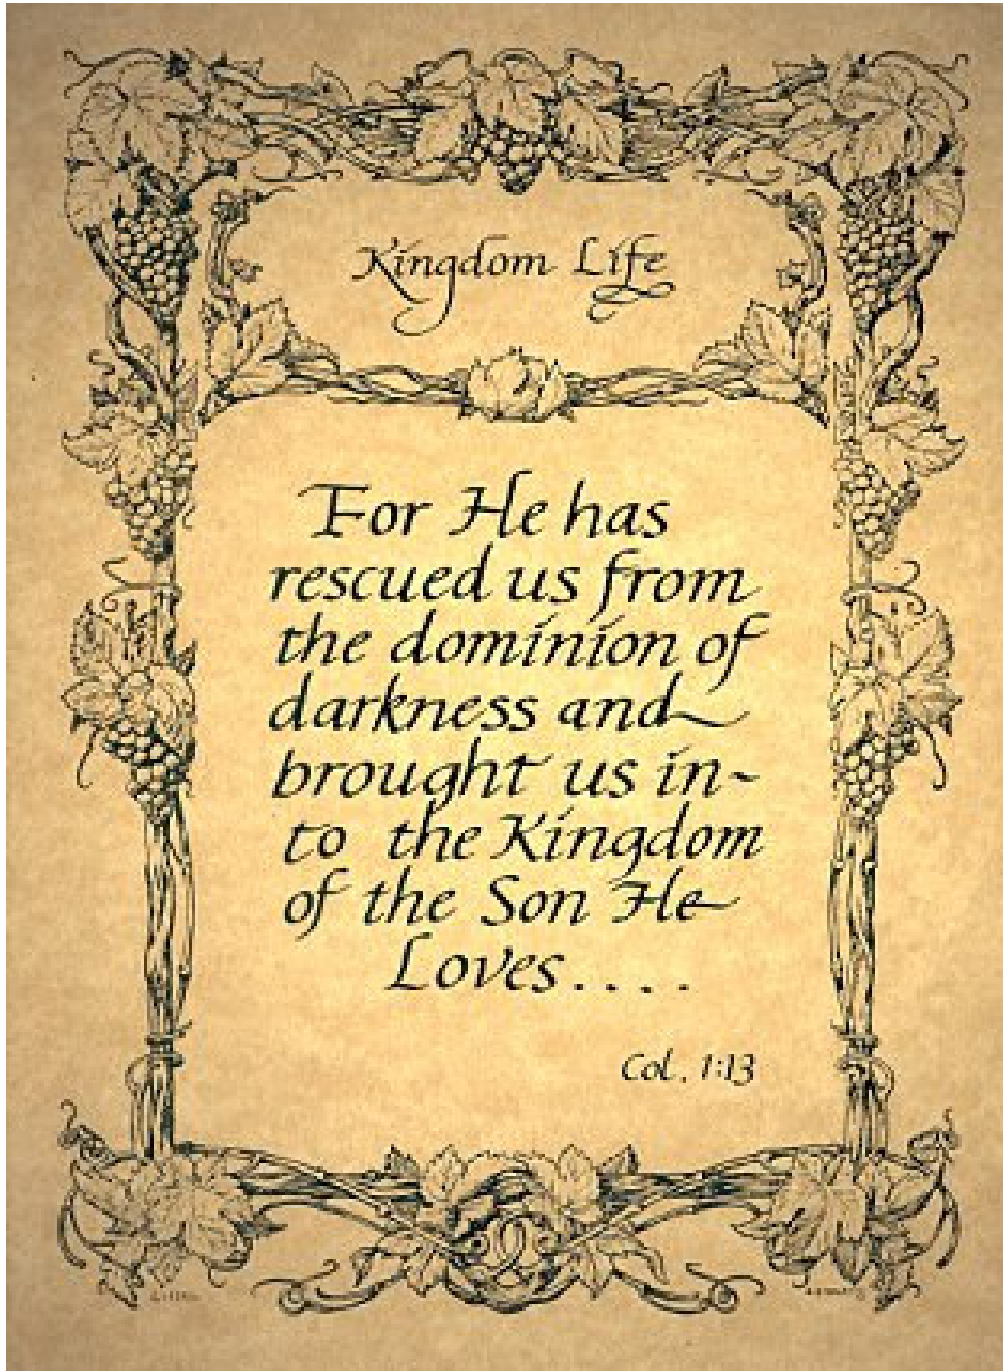 Kingdom Life
For He has
rescued us from
the dominion of
darkness and
brought us in-
to the Kingdom
of the Son He
Loves....
Col. 1:13